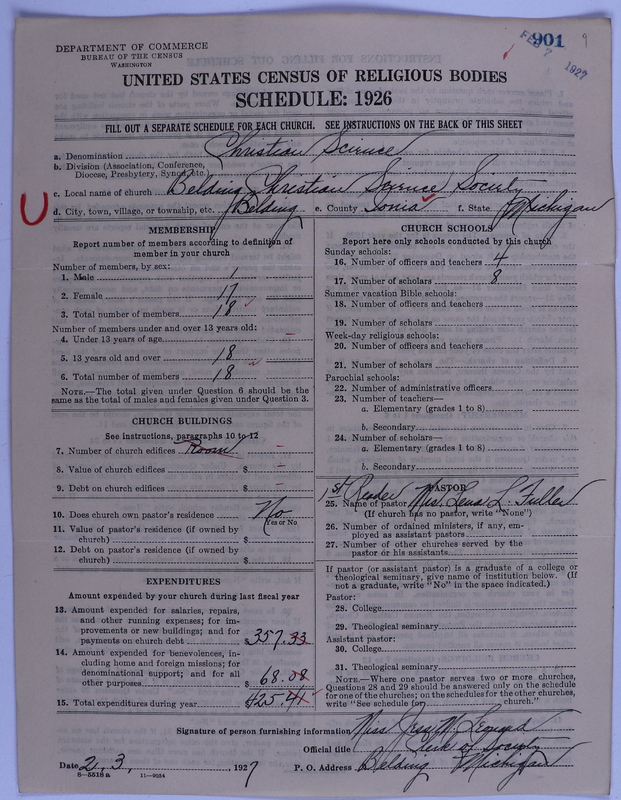 901
9
FEB 7 1927
DEPARTMENT OF COMMERCE
BUREAU OF THE CENSUS
WASHINGTON
UNITED STATES CENSUS OF RELIGIOUS BODIES
SCHEDULE: 1926
FILL OUT A SEPARATE SCHEDULE FOR EACH CHURCH. SEE INSTRUCTIONS ON THE BACK OF THIS SHEET
a. Denomination Christian Science
b. Division (Association, Conference,
Diocese, Presbytery, Synod, etc.)
c. Local name of church Belding Christian Science Society
d. City, town, village, or township, etc. Belding e. County Ionia f. State Michigan
MEMBERSHIP
Report number of members according to definition of
member in your church
Number of members, by sex:
1. Male 1
2. Female 17
3. Total number of members 18
Number of members under and over 13 years old:
4. Under 13 years of age –
5. 13 years old and over 18
6. Total number of members 18
NOTE.—The total given under Question 6 should be the
same as the total of males and females given under Question 3.
CHURCH BUILDINGS
See instructions, paragraphs 10 to 12
7. Number of church edifices Room –
8. Value of church edifices $ –
9. Debt on church edifices $ –
10. Does church own pastor's residence No
Yes or No
11. Value of pastor's residence (if owned by
church) $
12. Debt on pastor's residence (if owned by
church) $
EXPENDITURES
Amount expended by your church during last fiscal year
13. Amount expended for salaries, repairs,
and other running expenses; for im-
provements or new buildings; and for
payments on church debt $357.33
14. Amount expended for benevolences, in-
cluding home and foreign missions; for
denominational support; and for all
other purposes $ 68.08
15. Total expenditures during year $425.41
CHURCH SCHOOLS
Report here only schools conducted by this church
Sunday schools:
16. Number of officers and teachers 4
17. Number of scholars 8
Summer vacation Bible schools:
18. Number of officers and teachers
19. Number of scholars
Week-day religious schools:
20. Number of officers and teachers
21. Number of scholars
Parochial schools:
22. Number of administrative officers
23. Number of teachers—
a. Elementary (grades 1 to 8)
b. Secondary
24. Number of scholars—
a. Elementary (grades 1 to 8)
b. Secondary
PASTOR
1st Reader
25. Name of pastor Mrs. Lena L. Fuller
(If church has no pastor, write "None")
26. Number of ordained ministers, if any, em-
ployed as assistant pastors
27. Number of other churches served by the
pastor or his assistants
If pastor (or assistant pastor) is a graduate of a college or
theological seminary, give name of institution below. (If
not a graduate, write "No" in the space indicated.)
Pastor:
28. College
29. Theological seminary
Assistant pastor:
30. College
31. Theological seminary
NOTE.—Where one pastor serves two or more churches,
Questions 28 and 29 should be answered only on the schedule
for one of the churches; on the schedules for the other churches,
write "See schedule for church."
Signature of person furnishing information Miss
Official title Clerk of Society
Date 2, 3, 1927 P. O. Address Belding Michigan
8—5518a 11—9034